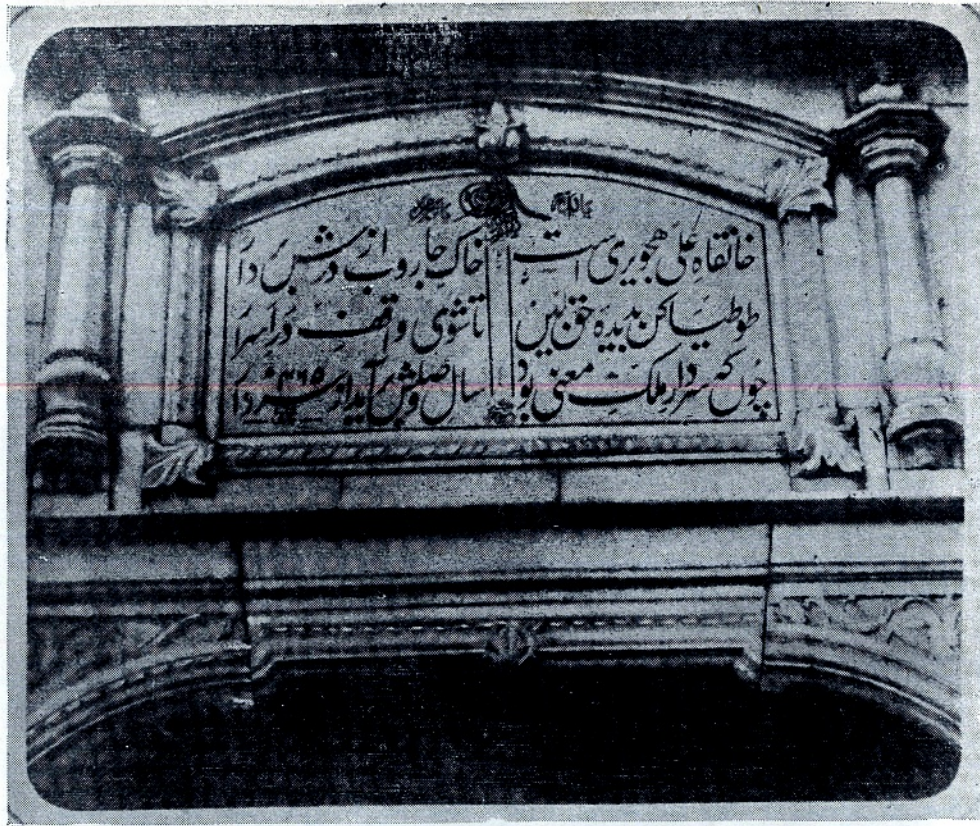 خانقاہِ علی ہجویری است خاکِ جاروب از درش بردار
طوطیا کن بدیدۂ حق بیں تا شوی واقفِ در اسرار
چوں کہ سردارِ ملکِ معنی بود سالِ وصلش برآید از سردار
۴۶۵